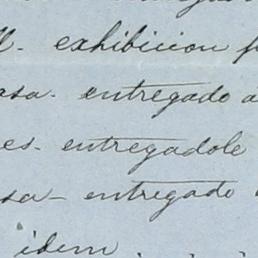 exhibicion
asa. entregado a
es- entregadole
sa- entregado
idem